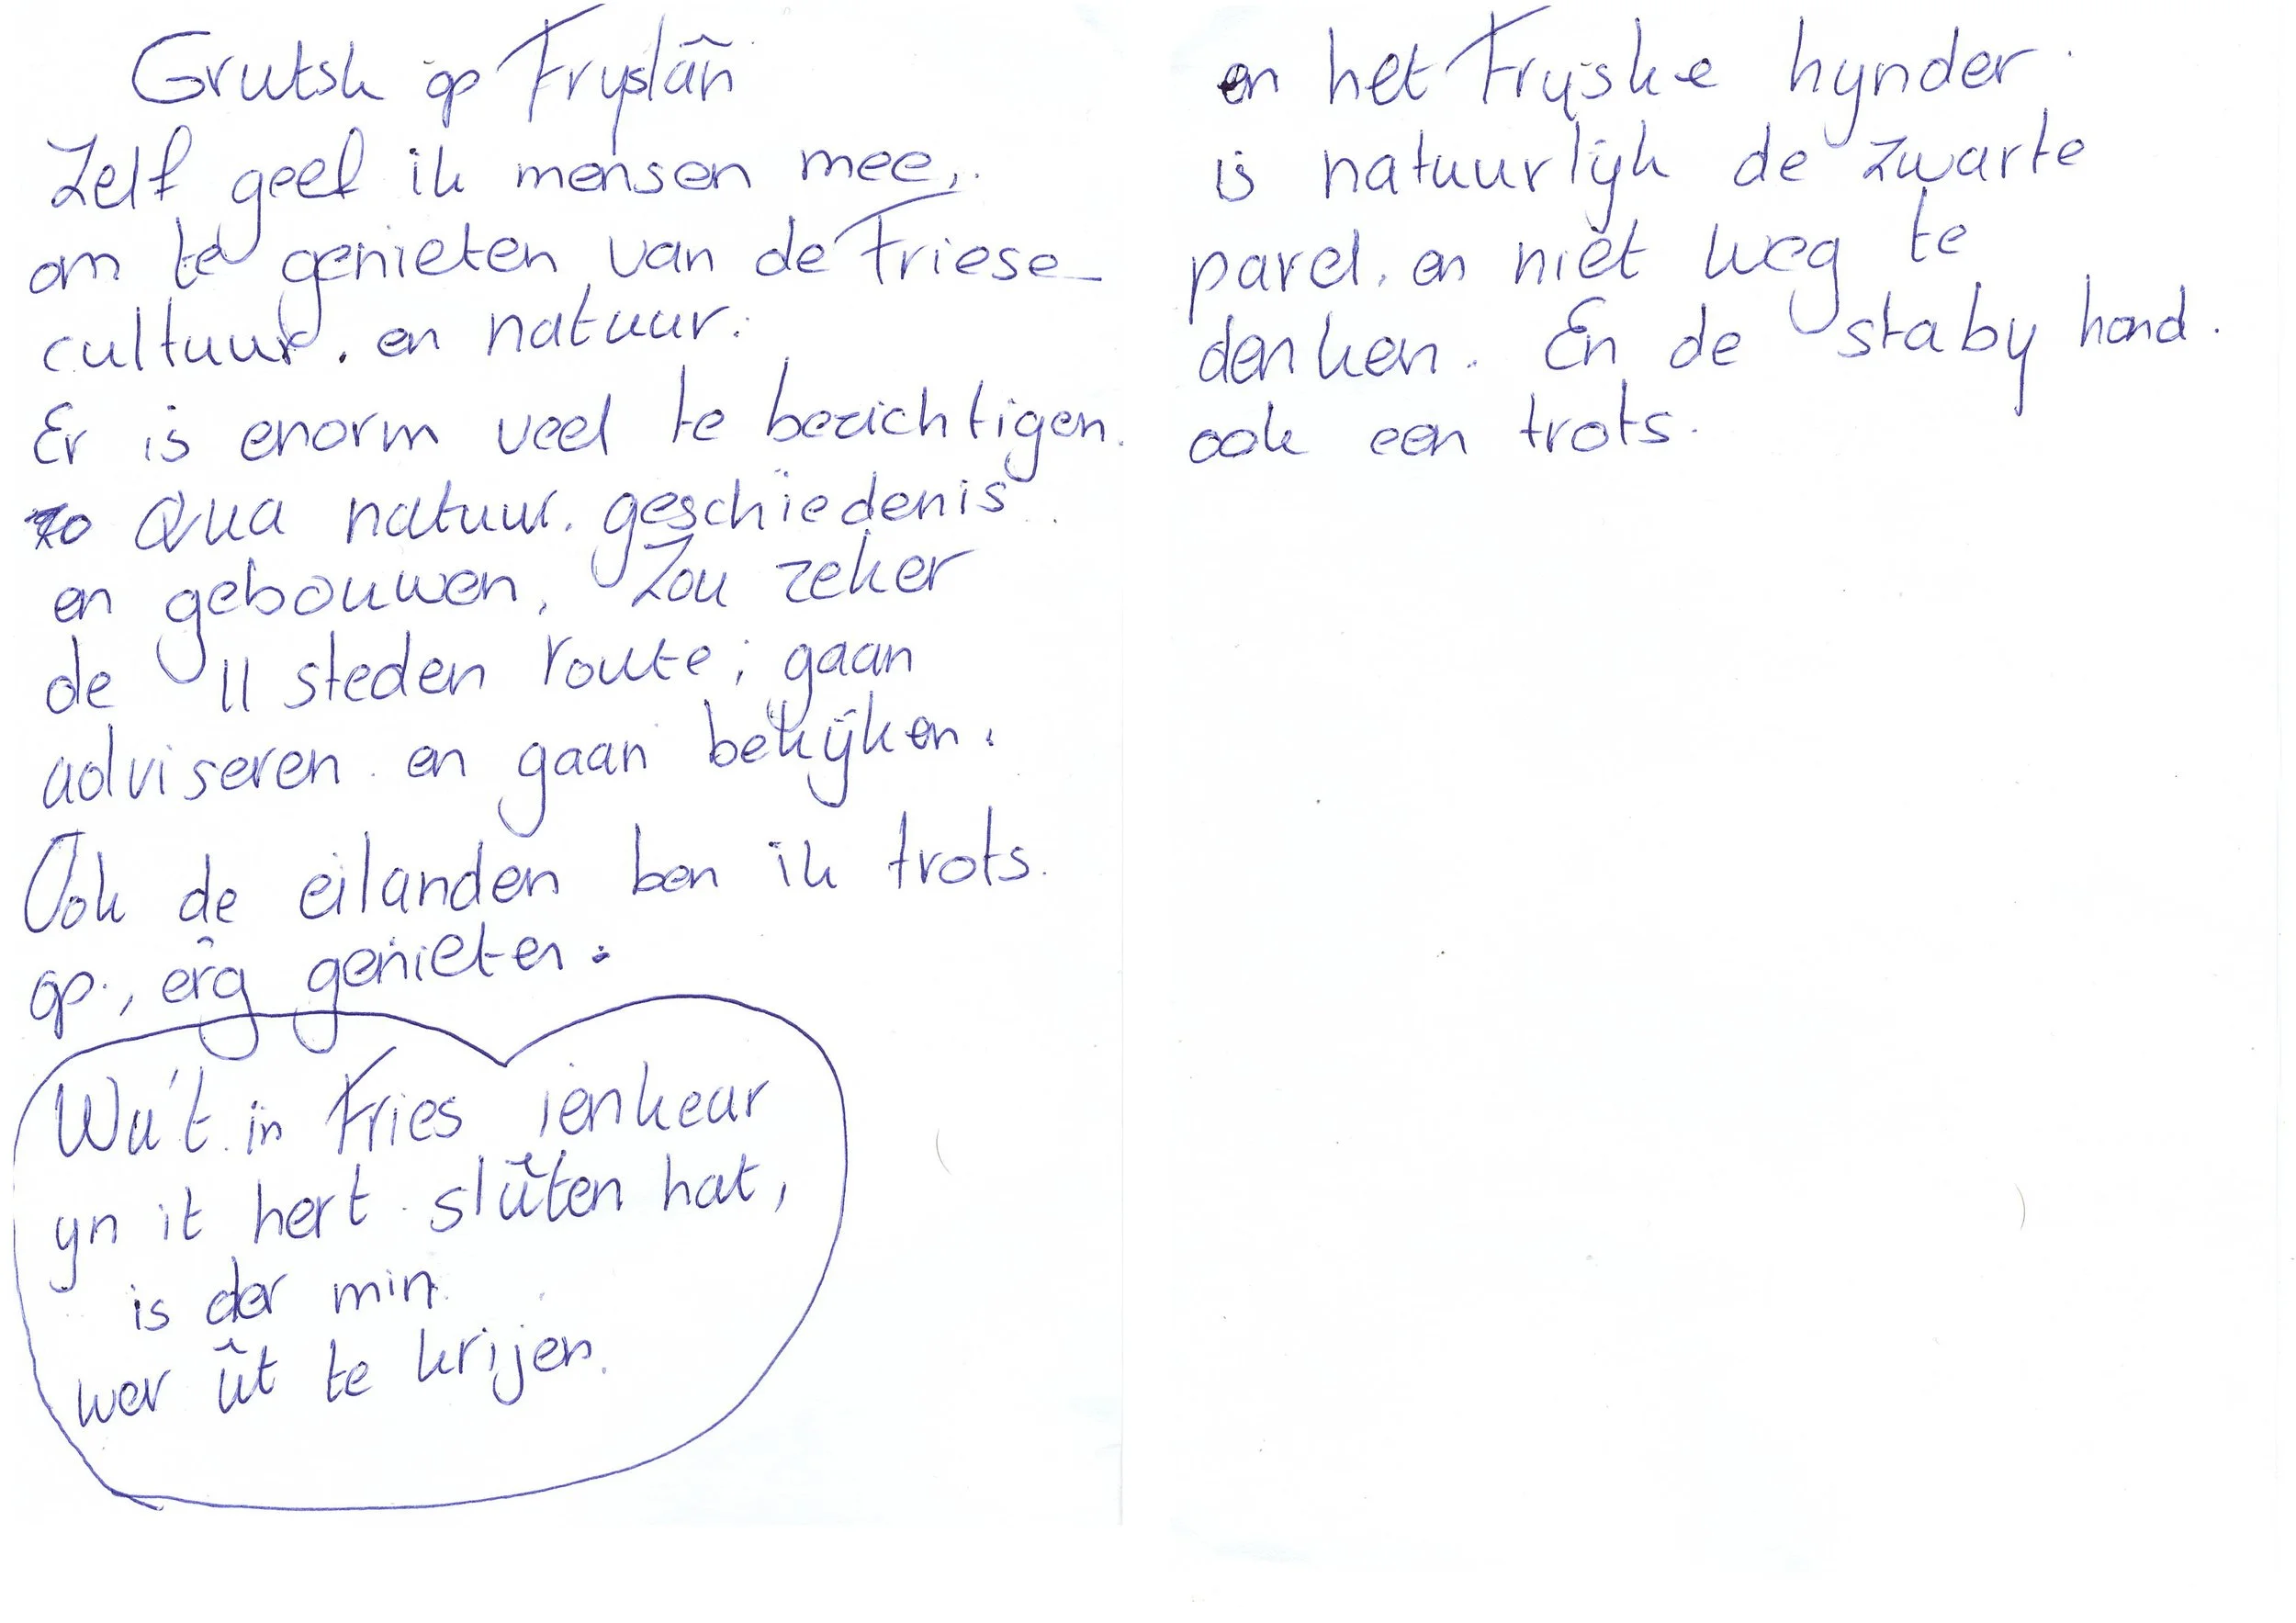 Grutsk op Fryslân
Zelf geef ik mensen mee,.
om te genieten van de Friese
cultuur. en natuur.
Er is enorm veel te bezichtigen.
zo Qua natuur. geschiedenis.
en gebouwen, Zou zeker
de 11 steden route; gaan
adviseren en gaan bekijken.
Ook de eilanden ben ik trots.
op., erg genieten.
Wa't in Fries ienkear
yn it hert slûten hat,
is der min
wer ût te krijen.
en het Fryske hynder.
is natuurlijk de zwarte
parel. en niet weg te
denken. En de staby hond.
ook een trots.